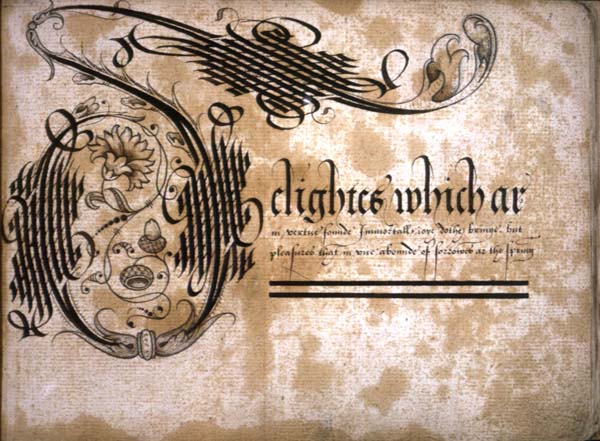 Delightes which ar
in vertue founde Immortall ioye dothe bringe but
pleasures that in vice abounde of sorrowes ar the spring